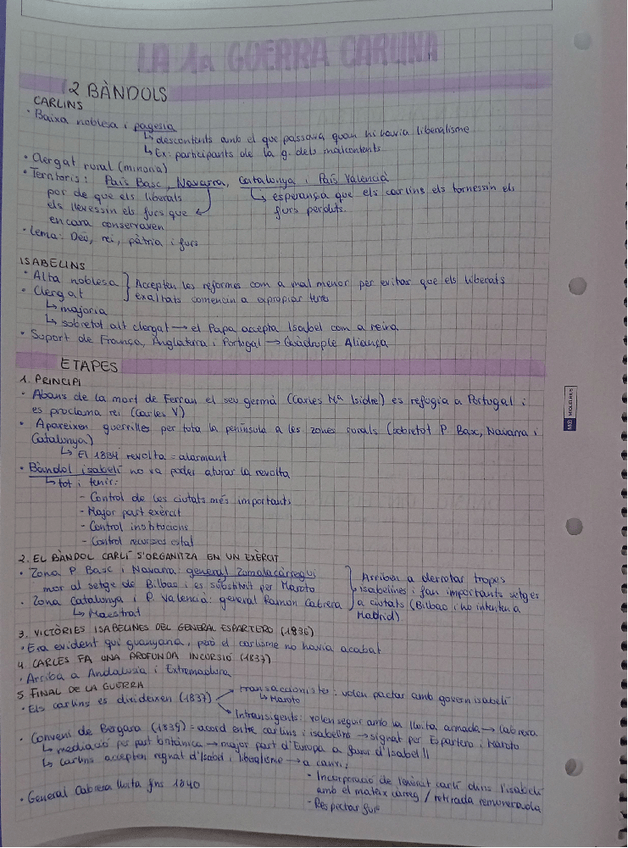 LA 1a GUERRA CARLINA
2 BÀNDOLS
CARLINS
· Baixa noblesa i pagesia
↳ descontents amb el que passava quan hi havia liberalisme
↳ Ex: participants de la g. dels malcontents
· Clergat rural (minoria)
· Territoris: País Basc, Navarra, Catalunya i País Valencià
por de que els liberals
els llevessin els furs que
encara conservaven
↳ esperança que els carlins els tornessin els
furs perduts
· Lema: Déu, rei, pàtria i furs
ISABELINS
· Alta noblesa
· Clergat
Accepten les reformes com a mal menor per evitar que els liberals
exaltats comencin a apropiar
↳ majoria
↳ sobretot alt clergat → el Papa accepta Isabel com a reina
· Suport de França, Anglaterra i Portugal → Quàdruple Aliança
ETAPES
1. PRINCIPI
· Abans de la mort de Ferran el seu germà (Carles Mª Isidre) es refugia a Portugal i
es proclama rei (Carles V)
· Apareixen guerrilles per tota la península a les zones rurals (sobretot P. Basc, Navarra i
Catalunya)
↳ El 1834 revolta = alarmant
· Bàndol isabelí no va poder aturar la revolta
↳ tot i tenir:
- Control de les ciutats més importants
- Major part exèrcit
- Control institucions
- Control recursos estat
2. EL BÀNDOL CARLÍ S'ORGANITZA EN UN EXÈRCIT
· Zona P. Basc i Navarra: general Zumalacárregui
mor al setge de Bilbao i és substituït per Maroto
· Zona Catalunya i P. Valencià: general Ramon Cabrera
↳ Maestrat
Arriben a derrotar tropes
isabelines i fan importants setges
a ciutats (Bilbao i ho intenten a
Madrid)
3. VICTÒRIES ISABELINES DEL GENERAL ESPARTERO (1836)
· Era evident qui guanyaria, però el carlisme no havia acabat
4. CARLES FA UNA PROFUNDA INCURSIÓ (1837)
· Arriba a Andalusia i Extremadura
5. FINAL DE LA GUERRA
· Els carlins es divideixen (1837)
transaccionistes: volen pactar amb govern isabelí
↳ Maroto
Intransigents: volen seguir amb la lluita armada → Cabrera
· Conveni de Bergara (1839) = acord entre carlins i isabelins → signat per Espartero i Maroto
↳ mediació per part britànica → major part d'Europa a favor d'Isabel II
↳ carlins accepten regnat d'Isabel i liberalisme → a canvi:
· Incorporació de l'exèrcit carlí dins l'isabelí
amb el mateix càrreg / retirada remunerada
· Respectar furs
· General Cabrera lluita fins 1840